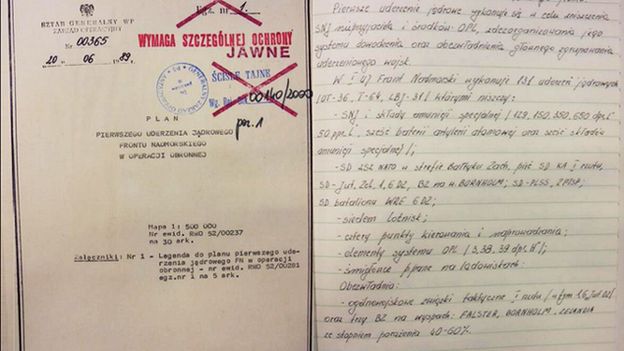 SZTAB GENERALNY WP
ZARZĄD OPERACYJNY
Nr 00365
20 06 1989
Egz. nr 1.
WYMAGA SZCZEGÓLNEJ OCHRONY
JAWNE
ŚCIŚLE TAJNE
00140/2000
poz. 1
PLAN
PIERWSZEGO UDERZENIA JĄDROWEGO
FRONTU NADMORSKIEGO
W OPERACJI OBRONNEJ
Mapa 1: 500 000
Nr ewid. RWD 52/00237
na 30 ark.
Załączniki: Nr 1 - Legenda do planu pierwszego ude-
rzenia jądrowego FN w operacji
obronnej - nr ewid. RWD 52/00281
egz.nr 1 na 5 ark.
Pierwsze uderzenie jądrowe wykonuje się w celu zniszczenia
SNJ nieprzyjaciela i środków OPL, zdezorganizowania jego
systemu dowodzenia oraz obezwładnienia głównego zgrupowania
uderzeniowego wojsk.
W I UJ Front Nadmorski wykonuje 131 uderzeń jądrowych
/OT-36, T-64, LBJ-31/ którymi niszczy:
- SNJ i składy amunicji specjalnej /129, 150, 350, 650 dpl.
50 ppr. L, sześć baterii artylerii atomowej oraz sześć składów
amunicji specjalnej/;
- SD ZSZ NATO w strefie Bałtyku Zach, pięć SD KA I rzutu,
SD-Jut, Zel. 1, 6 DZ, BZ na w. BORNHOLM; SD-PLSS, ZPTSP,
SD batalionu WRE 6DZ;
- siedem lotnisk;
- cztery punkty kierowania i naprowadzania;
- elementy systemu OPL /3, 38, 39 dpl. H/;
- śmigłowce ppanc na lądowiskach.
Obezwładnia:
- ogólnowojskowe związki taktyczne I rzutu /w tym 1, 6, Jut DZ/
oraz trzy BZ na wyspach: FALSTER, BORNHOLM, ZELANDIA
ze stopniem porażenia 40-60%.